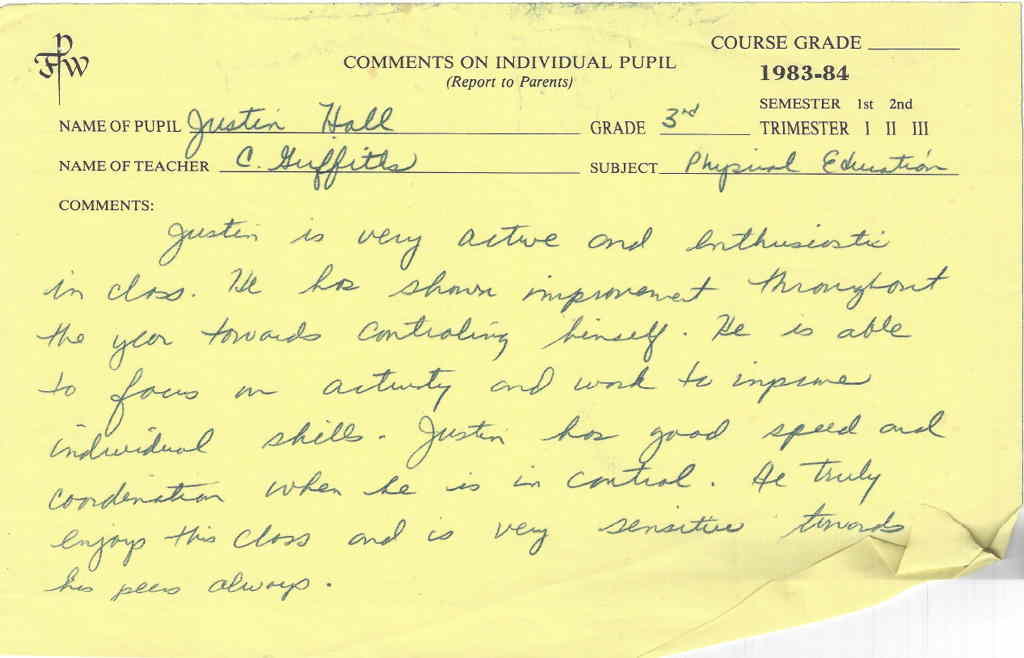 P
F W
COURSE GRADE
COMMENTS ON INDIVIDUAL PUPIL
(Report to Parents)
1983-84
SEMESTER 1st 2nd
NAME OF PUPIL Justin Hall GRADE 3rd TRIMESTER I II III
NAME OF TEACHER C. Griffiths SUBJECT Physical Education
COMMENTS:
Justin is very active and enthusiastic
in class. He has shown improvement throughout
the year towards controling himself. He is able
to focus on activity and work to improve
individual skills. Justin has good speed and
coordination when he is in control. He truly
enjoys this class and is very sensitive towards
his peers always.